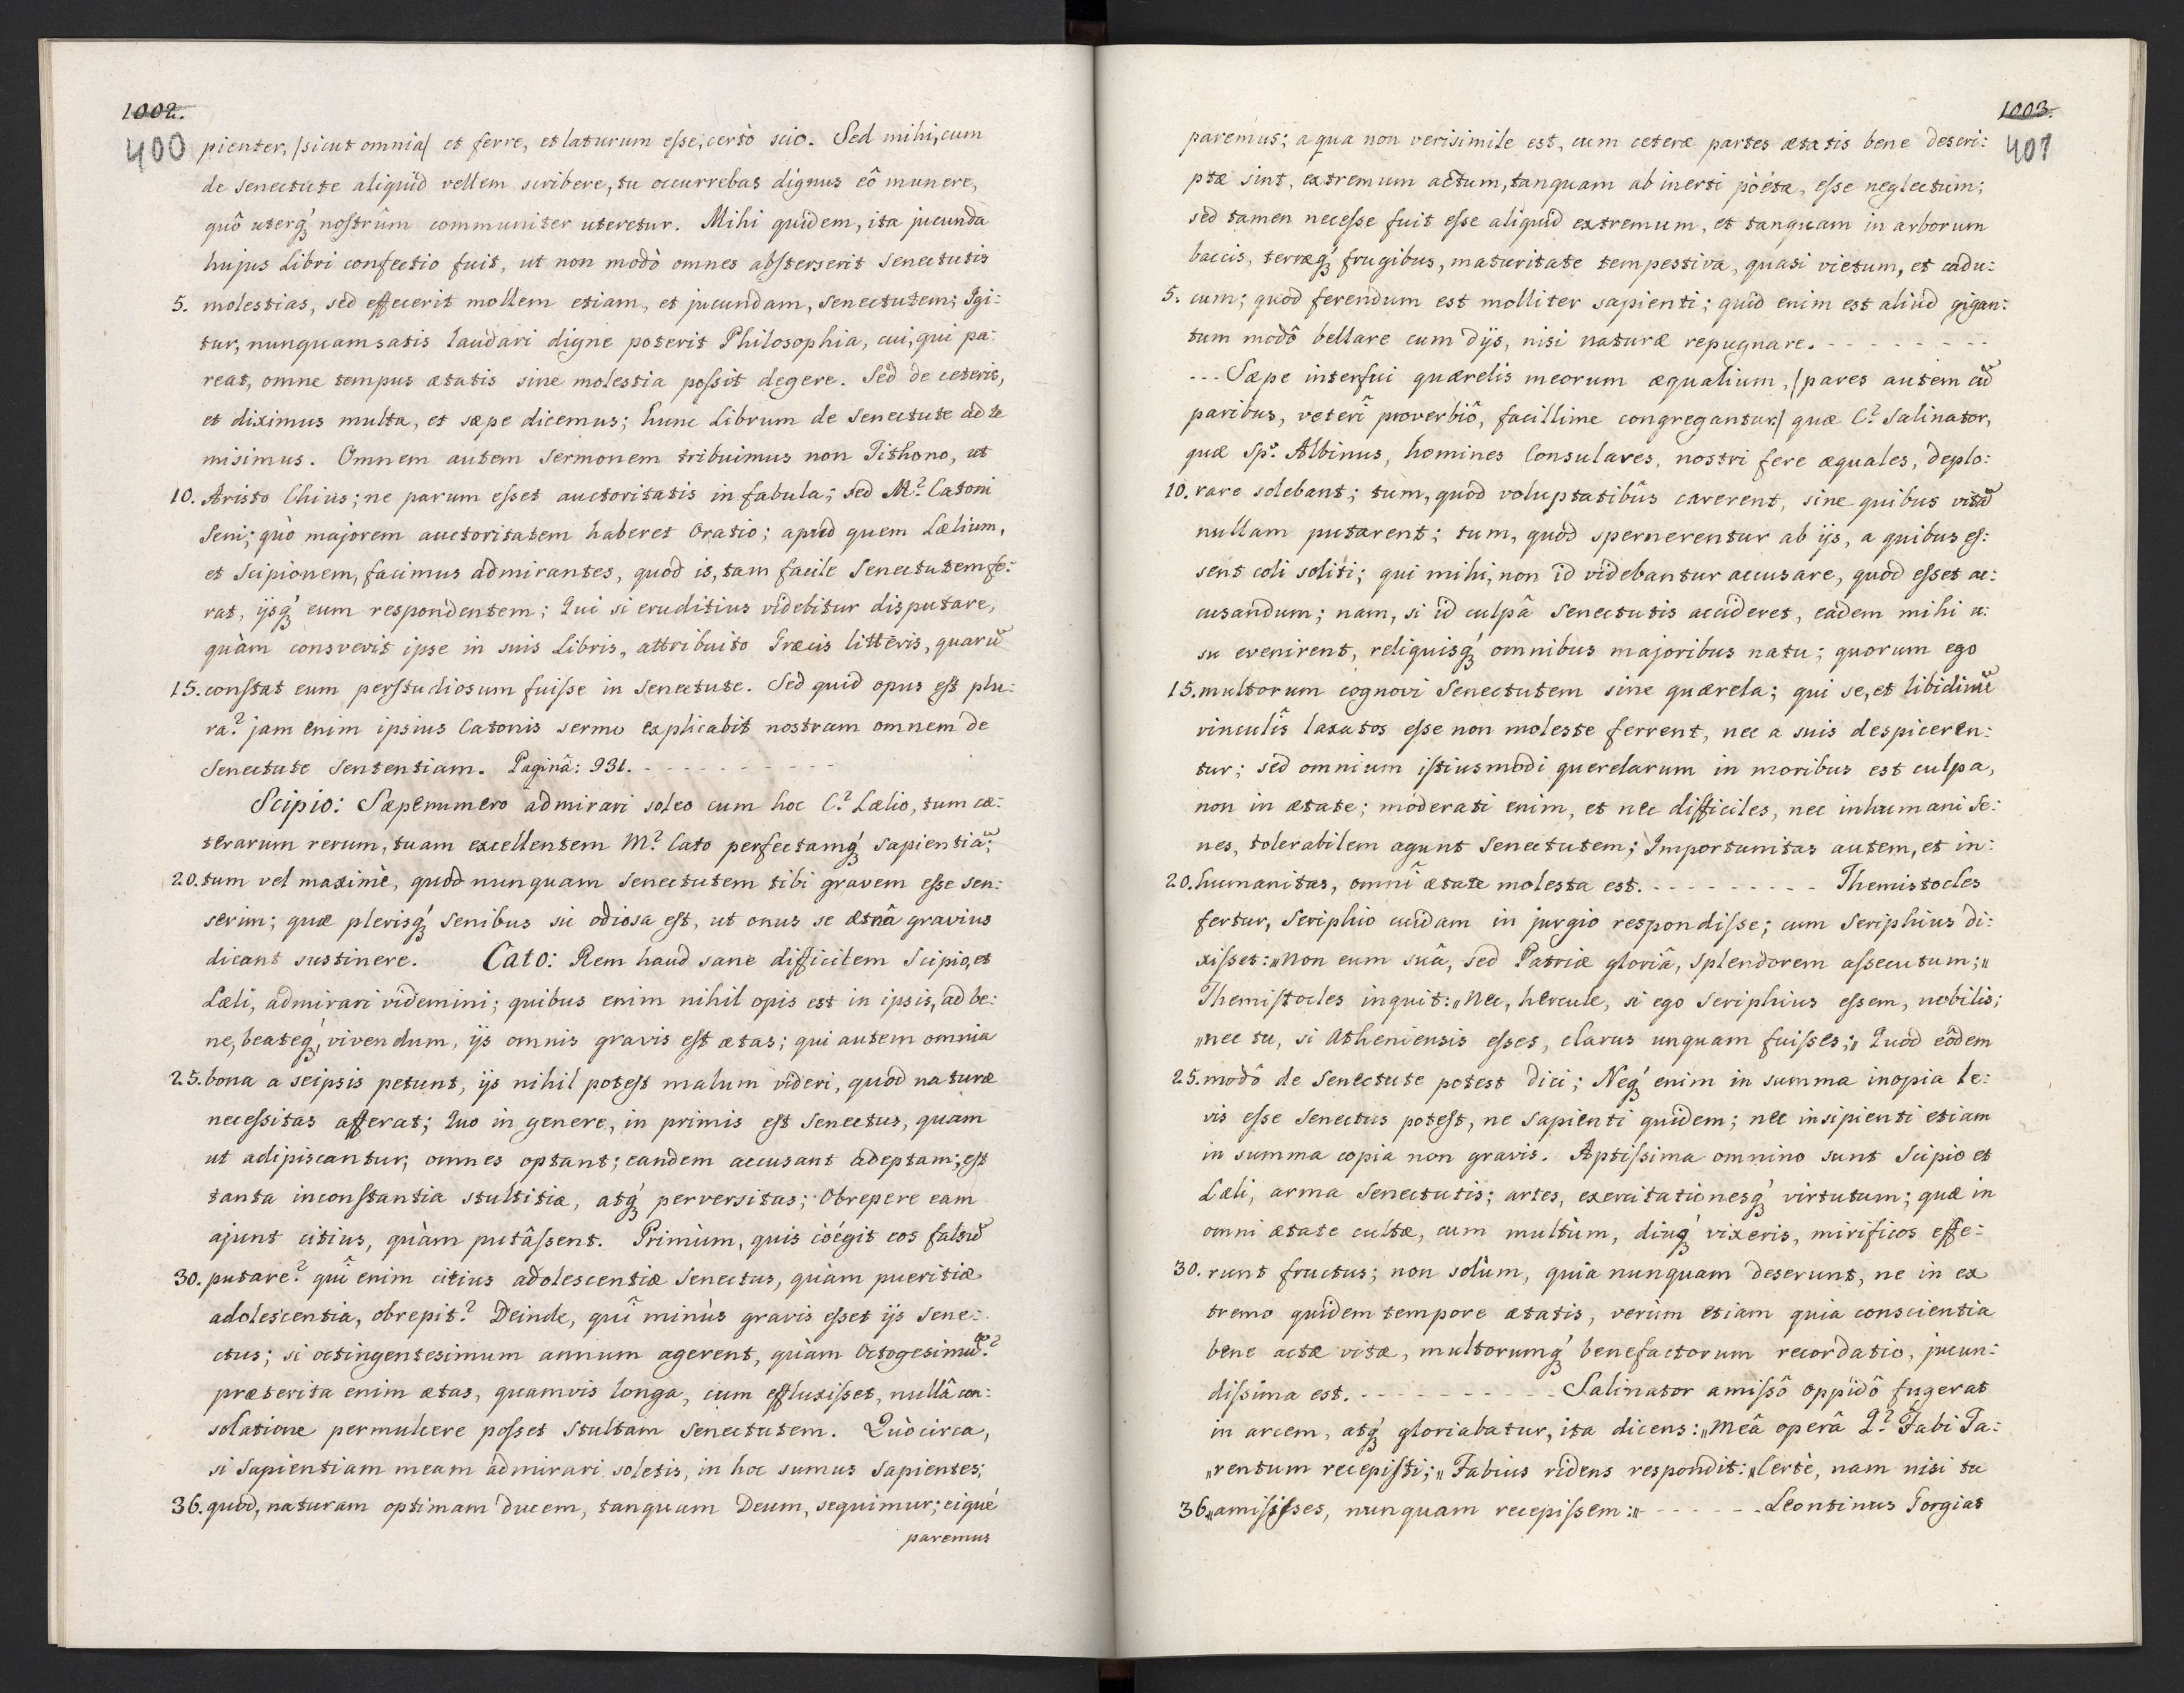 1002.
400
pienter, /sicut omnia/ et ferre, et laturum eſse, certò scio. Sed mihi, cum
de senectute aliquid vellem scribere, tu occurrebas dignus eô munere,
quô uterq́ʒ noſtrûm communiter uteretur. Mihi quidem, ita jucunda
hujus Libri confectio fuit, ut non modò omnes abſterserit Senectutis
5. molestias, sed effecerit mollem etiam, et jucundam, senectutem; Igi:
tur, nunquam satis laudari digne poterit Philosophia, cui, qui pa:
reat, omne tempus ætatis sine molestia poſsit degere. Sed de ceteris,
et diximus multa, et sæpe dicemus; hunc Librum de Senectute ad te
misimus. Omnem autem Sermonem tribuimus non Tithono, ut
10. Aristo Chius; ne parum eſset auctoritatis in fabula; sed M? Catoni
Seni; quò majorem auctoritatem haberet Oratio; apud quem Lælium,
et Scipionem, facimus admirantes, quod is, tam facile Senectutem fe:
rat, ijsq́ʒ eum respondentem; Qui si eruditius videbitur disputare,
quàm consvevit ipse in suis Libris, attribuito Græcis litteris, quarū
15. conſtat eum perſtudiosum fuiſse in Senectute. Sed quid opus eſt plu:
ra? jam enim ipsius Catonis sermo explicabit nostram omnem de
Senectute Sententiam. Paginâ: 931. - - - - - - - - - -
Scipio: Sæpenumero admirari soleo cum hoc C? Lælio, tum cæ:
terarum rerum, tuam excellentem M? Cato perfectamq́ʒ sapientiā;
20. tum vel maximè, quod nunquam Senectutem tibi gravem eſse sen:
serim; quæ plerisq́ʒ Senibus sic odiosa eſt, ut onus se Ætnâ gravius
dicant sustinere. Cato: Rem haud sane difficilem Scipio, et
Læli, admirari videmini; quibus enim nihil opis est in ipsis, ad be:
ne, beateq́ʒ, vivendum, ijs omnis gravis eſt ætas; qui autem omnia
25. bona a seipsis petunt, ijs nihil poteſt malum videri, quod naturæ
neceſsitas afferat; Quo in genere, in primis eſt Senectus, quam
ut adipiscantur, omnes optant; eandem accusant adeptam; eſt
tanta inconſtantia stultitiæ, atq́ʒ perversitas; Obrepere eam
ajunt citius, quàm putâſsent. Primùm, quis cöégit eos falsū
30. putare? quî enim citius adolescentiæ Senectus, quàm pueritiæ
adolescentia, obrepit? Deinde, quî minùs gravis eſset ijs Sene:
ctus; si octingentesimum annum agerent, quàm Octogesimū?
præterita enim ætas, quamvis longa, cum effluxiſset, nullâ con:
solatione permulcere poſset Stultam Senectutem. Quòcirca,
si Sapientiam meam admirari soletis, in hoc sumus Sapientes;
36. quod, naturam optimam ducem, tanquam Deum, sequimur; eiqué
paremus
1003.
401
paremus; a qua non verisimile est, cum ceteræ partes ætatis bene descri:
ptæ sint, extremum actum, tanquam ab inerti pöéta, eſse neglectum;
sed tamen neceſse fuit eſse aliquid extremum, et tanquam in arborum
baccis, terræq́ʒ frugibus, maturitate tempestiva, quasi vietum, et cadu:
5. cum; quod ferendum est molliter sapienti; quid enim est aliud gigan:
tum modô bellare cum Dijs, nisi naturæ repugnare. - - - - - - - -
- - - Sæpe interfui quærelis meorum æqualium, /pares autem cū
paribus, veterî proverbiô, facillime congregantur/ quæ C? Salinator,
quæ Sp? Albinus, homines Consulares, nostri fere æquales, deplo:
10. rare solebant; tum, quod voluptatibûs carerent, sine quibus vitā
nullam putarent; tum, quod spernerentur ab ijs, a quibus eſ:
sent coli soliti; qui mihi, non id videbantur accusare, quod eſset ac:
cusandum; nam, si id culpâ Senectutis accideret, eadem mihi u:
su evenirent, reliquisq́ʒ omnibus majoribus natu; quorum ego
15. multorum cognovi Senectutem sine quærela; qui se, et libidinū
vinculîs laxatos eſse non moleste ferrent, nec a suis despiceren:
tur; sed omnium iſtiusmodi querelarum in moribus est culpa,
non in ætate; moderati enim, et nec difficiles, nec inhumani Se:
nes, tolerabilem agunt Senectutem; Importunitas autem, et in:
20. humanitas, omnî ætate molesta est. - - - - - - - - - Themistocles
fertur, Seriphio cuidam in jurgio respondiſse; cum Seriphius di:
xiſset: „Non eum suâ, sed Patriæ gloriâ, splendorem aſsecutum;„
Themiſtocles inquit: „Nec, hercule, si ego Seriphius eſsem, nobilis;
„nec tu, si Atheniensis eſses, clarus unquam fuiſses;„ Quod eôdem
25. modô de Senectute potest dici; Neq́ʒ enim in summa inopia le:
vis eſse Senectus poteſt, ne Sapienti quidem; nec insipienti etiam
in summa copia non gravis. Aptiſsima omnino sunt Scipio et
Læli, arma Senectutis; artes, exercitationesq́ʒ virtutum; quæ in
omni ætate cultæ, cum multùm, diuq́ʒ vixeris, mirificos effe:
30. runt fructus; non solùm, quia nunquam deserunt, ne in ex
tremo quidem tempore ætatis, verùm etiam quia conscientia
bene actæ vitæ, multorumq́ʒ benefactorum recordatio, jucun:
diſsima est. - - - - - - - - - - Salinator amiſsô oppidô fugerat
in arcem, atq́ʒ gloriabatur, ita dicens: „Meâ operâ Q? Fabi Ta:
„rentum recepiſti;„ Fabius ridens respondit: „Certè, nam nisi tu
36. „amiſiſses, nunquam recepiſsem:„ - - - - - - Leontinus Gorgias